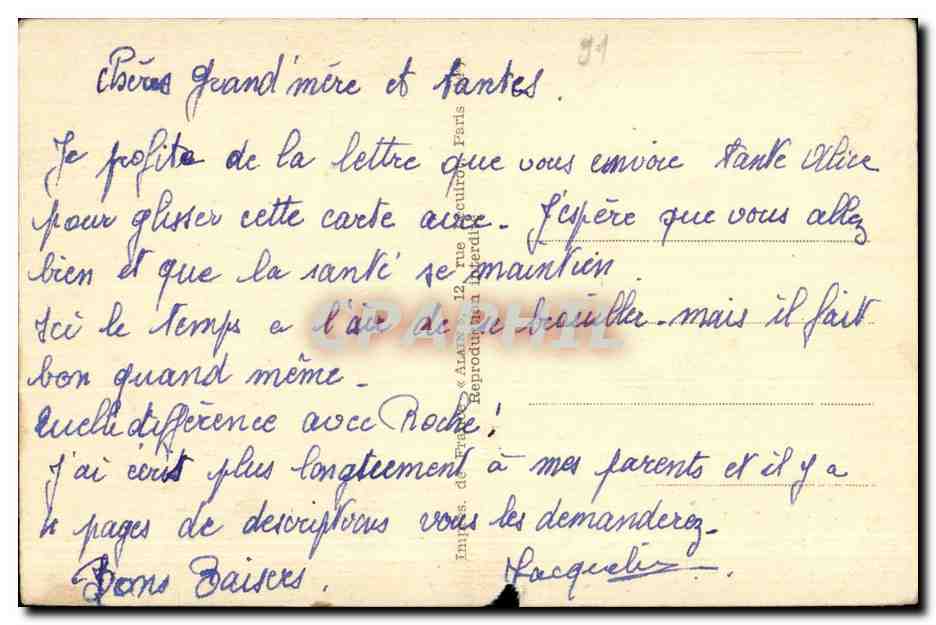 91
Chères Grand'mère et tantes.
Je profite de la lettre que vous envoie tante Alice
pour glisser cette carte avec. J'espère que vous allez
bien et que la santé se maintien.
Ici le temps a l'air de se brouiller. mais il fait
bon quand même.
Quelle différence avec Roche!
J'ai écrit plus longuement à mes parents et il y a
4 pages de descriptions vous les demanderez.
Bons Baisers. Jacqueline.
Impres. de France, « ALAIN », 12, rue Lécuirot, Paris
Reproduction interdite
CPAPHIL